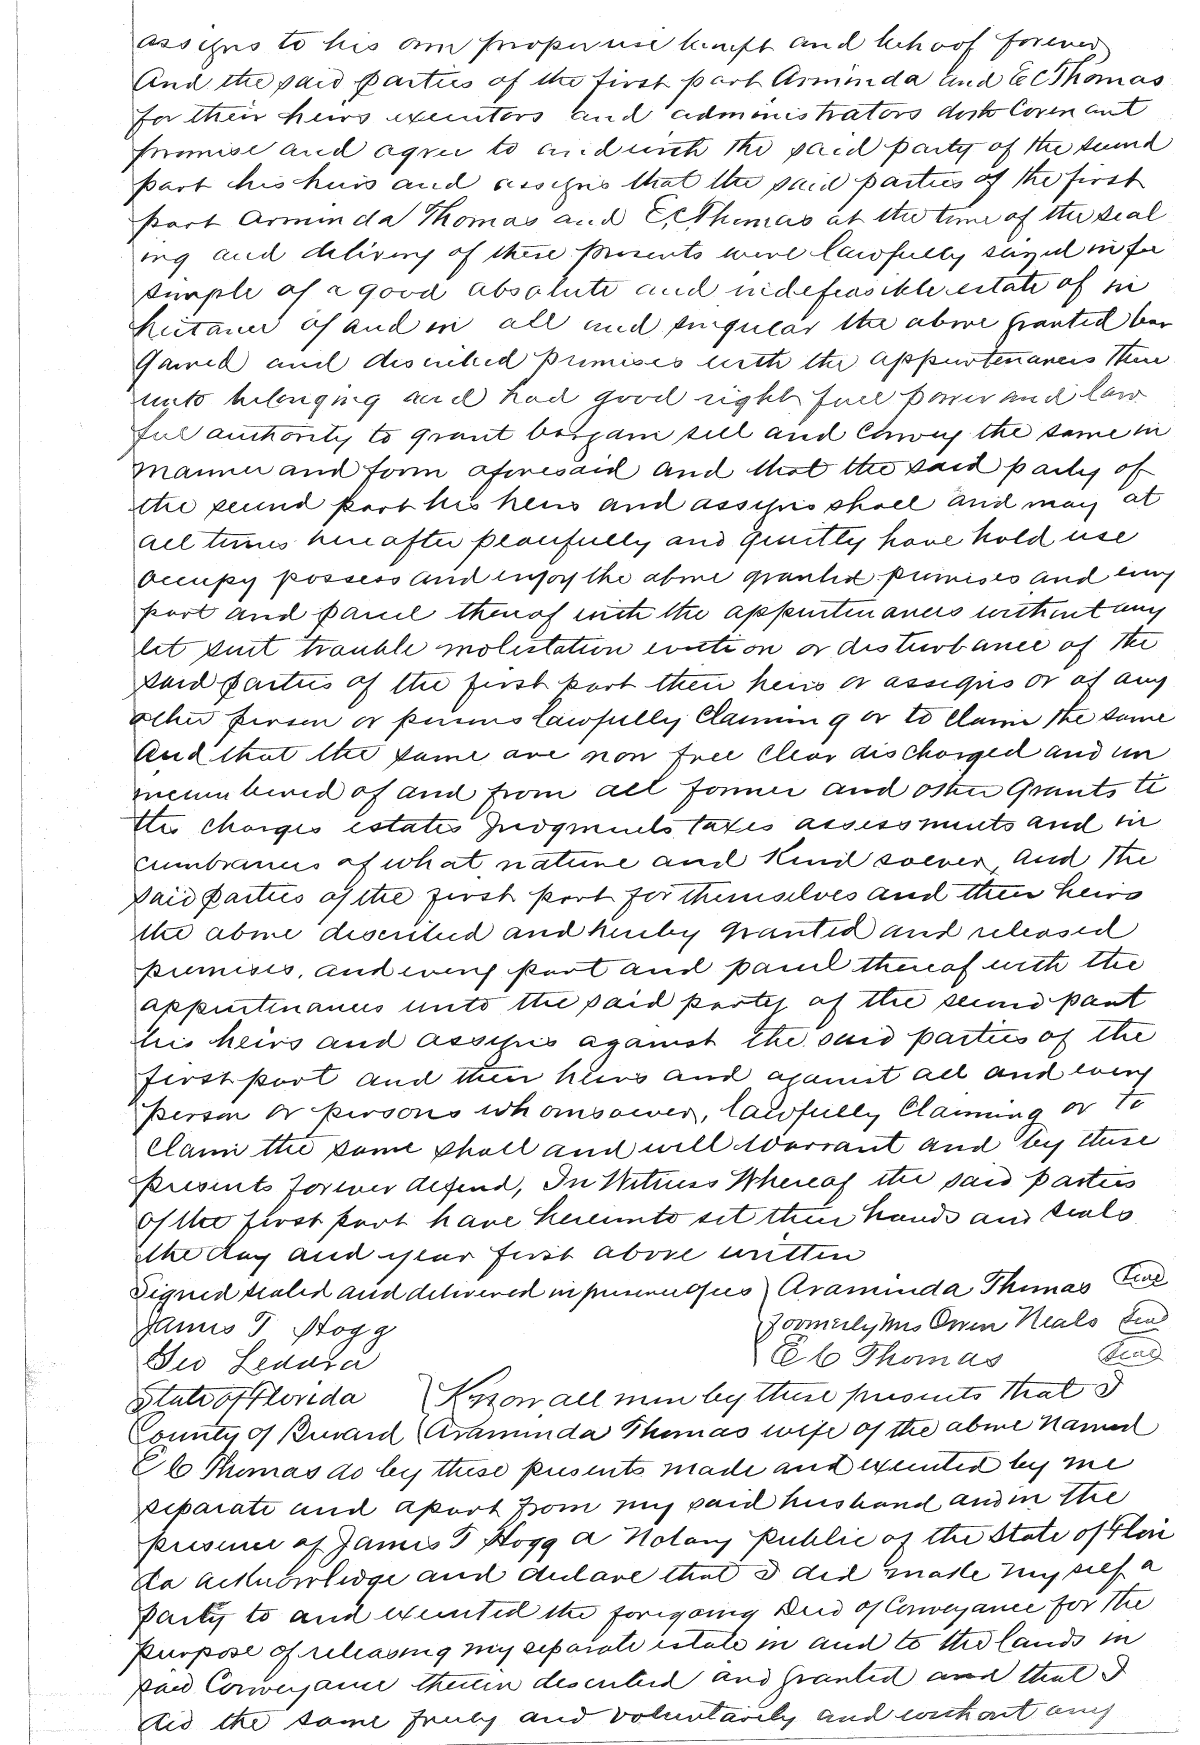 assigns to his own proper use benefit and behoof forever
And the said parties of the first part Arminda and E C Thomas
for their heirs executors and administrators doth Covenant
promise and agree to and with the said party of the second
part his heirs and assigns that the said parties of the first
part Arminda Thomas and E, C, Thomas at the time of the seal
ing and delivery of these presents were lawfully seized in fee
simple of a good absolute and indefeasible estate of in
heritance of and in all and singular the above granted bar
gained and described premises with the appurtenances there
unto belonging and had good right full power and law
ful authority to grant bargain sell and Convey the same in
manner and form aforesaid and that the said party of
the second part his heirs and assigns shall and may at
all times hereafter peacefully and quietly have hold use
occupy possess and enjoy the above granted premises and every
part and parcel thereof with the appurtenances without any
let suit trouble molestation eviction or disturbance of the
said parties of the first part their heirs or assigns or of any
other person or persons lawfully Claiming or to Claim the same
And that the same are now free Clear discharged and un
incumbered of and from all former and other Grants ti
tles charges estates Judgments taxes assessments and in
cumbrances of what nature and Kind soever, and the
said parties of the first part for themselves and their heirs
the above described and hereby granted and released
premises, and every part and parcel thereof with the
appurtenances unto the said party of the second part
his heirs and assigns against the said parties of the
first part and their heirs and against all and every
person or persons whomsoever, lawfully Claiming or to
Claim the same shall and will Warrant and by these
presents forever defend, In Witness Whereof the said parties
of the first part have hereunto set their hands and seals
the day and year first above written
Signed sealed and delivered in presence of us } Araminda Thomas Seal
James T Hogg formerly Mrs Owen Neals Seal
Geo E C Thomas Seal
State of Florida } Know all men by these presents that I
County of Brevard } Araminda Thomas wife of the above Named
E C Thomas do by these presents made and executed by me
separate and apart from my said husband and in the
presence of James T Hogg a Notary Public of the State of Flori
da acknowledge and declare that I did make myself a
party to and executed the foregoing Deed of Conveyance for the
purpose of releasing my separate estate in and to the lands in
said Conveyance therein described and granted and that I
did the same freely and voluntarily and without any